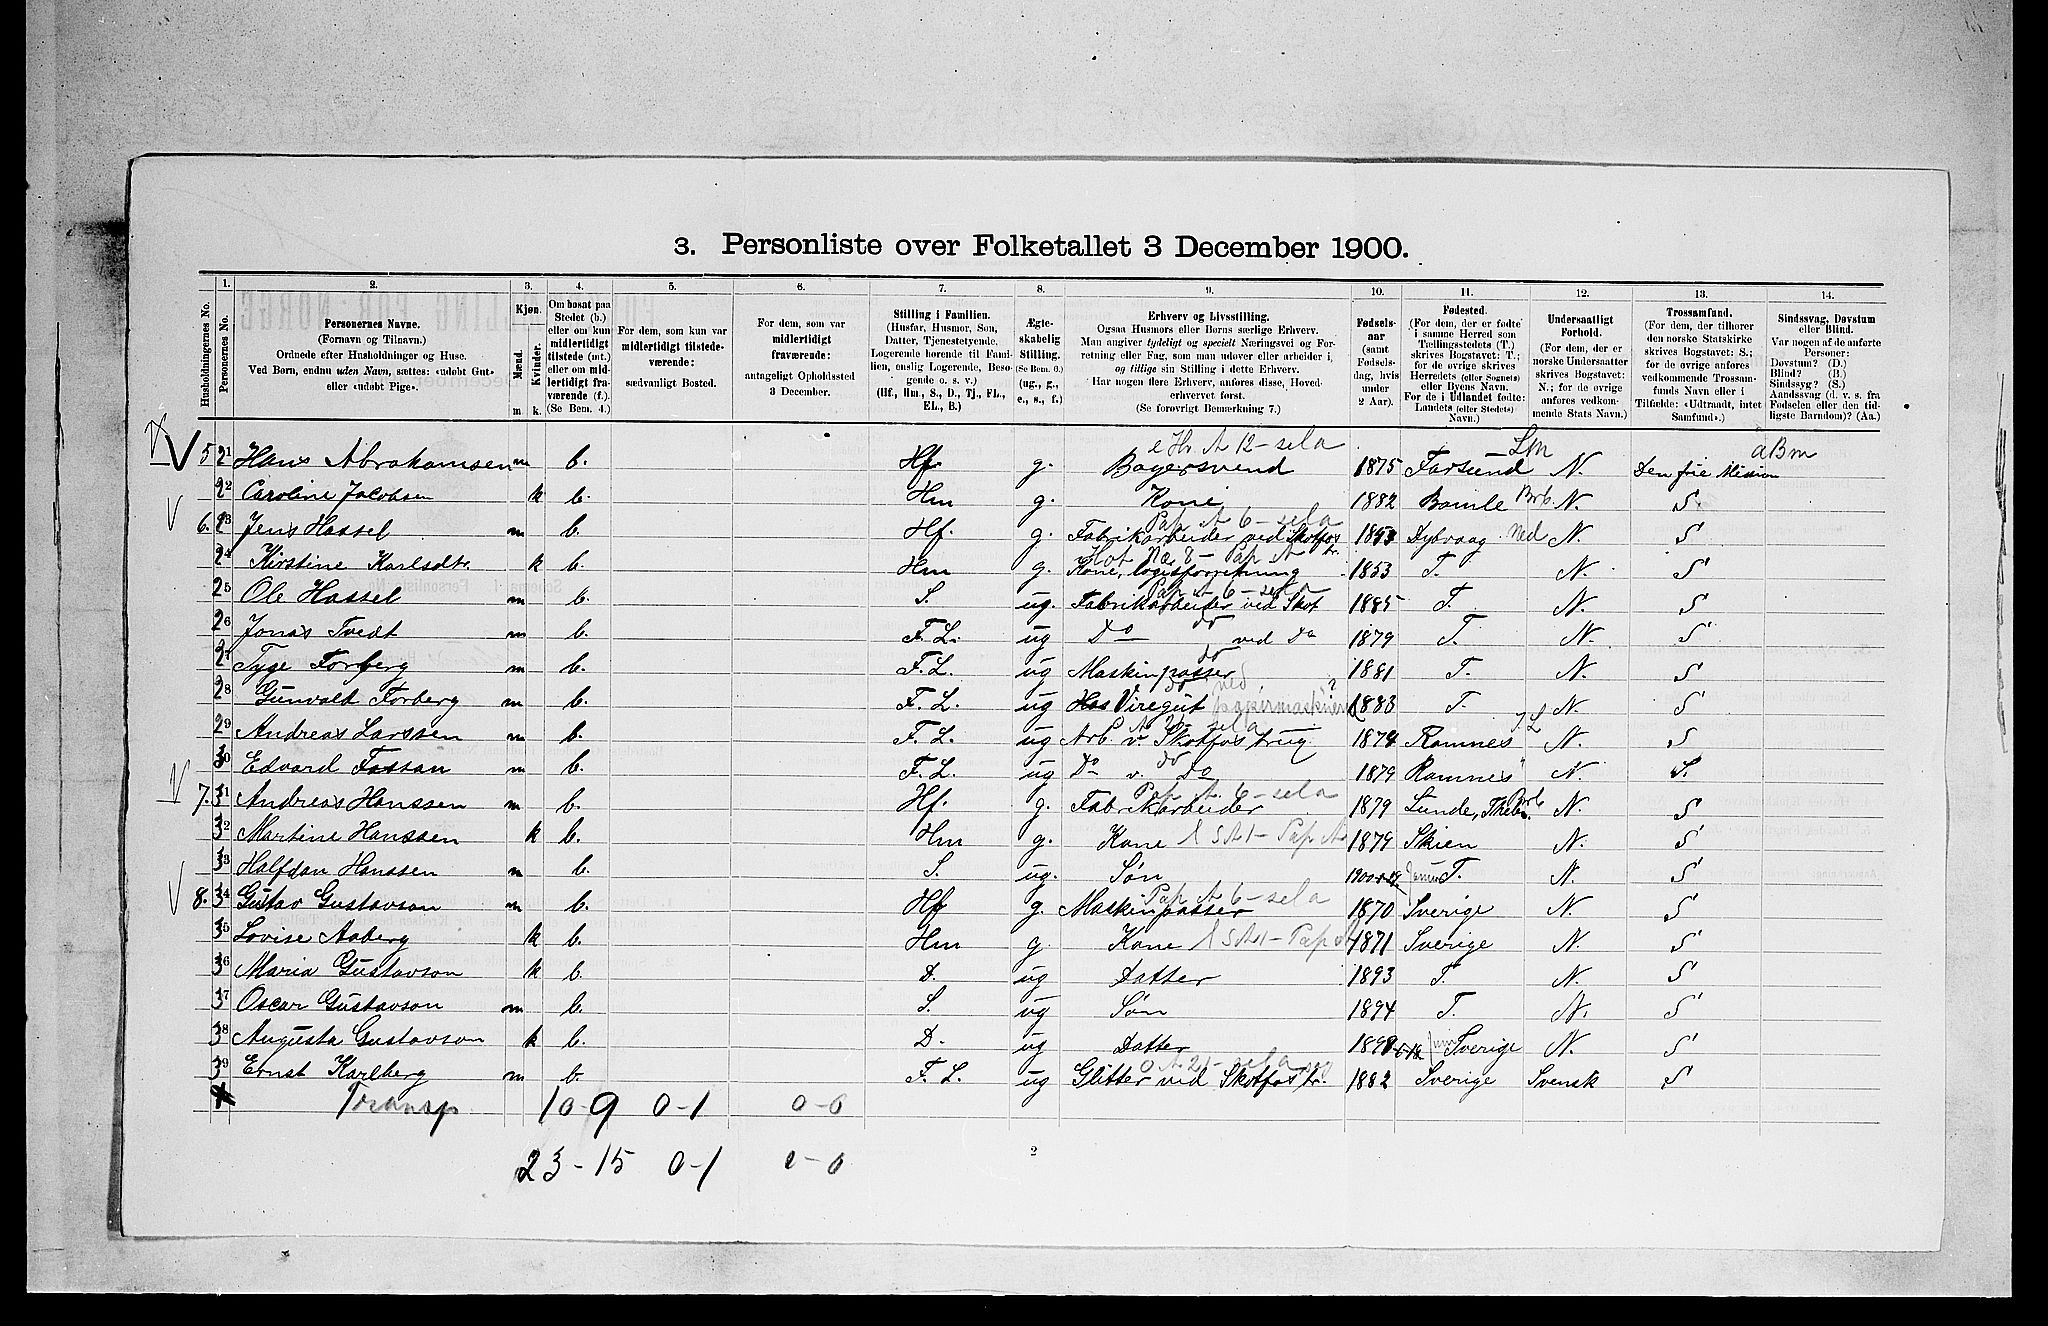 3. Personliste over Folketallet 3 December 1900.
Husholdningernes No.
1. Personernes No.
2. Personernes Navne. (Fornavn og Tilnavn.) Ordnede efter Husholdninger og Huse. Ved Børn, endnu uden Navn, sættes: «udøbt Gut» eller «udøbt Pige».
3. Kjøn. Mænd. m. Kvinder. k.
4. Om bosat paa Stedet (b.) eller om kun midlertidigt tilstede (mt.) eller om midlertidigt fraværende (f.) (Se Bem. 4.)
5. For dem, som kun var midlertidigt tilstedeværende: sædvanligt Bosted.
6. For dem, som var midlertidigt fraværende: antageligt Opholdssted 3 December.
7. Stilling i Familien. (Husfar, Husmor, Søn, Datter, Tjenestetyende, Logerende hørende til Familien, enslig Logerende, Besøgende o. s. v.) (Hf, Hm, S., D., Tj., FL., EL., B.)
8. Ægteskabelig Stilling. (Se Bem. 6.) (ug., g., e., s., f.)
9. Erhverv og Livsstilling. Ogsaa Husmors eller Børns særlige Erhverv. Man angiver tydeligt og specielt Næringsvei og Forretning eller Fag, som man udover eller arbeider i, og tillige sin Stilling i dette Erhverv. Har nogen flere Erhverv, anføres disse, Hovederhvervet først. (Se forøvrigt Bemerkning 7.)
10. Fødselsaar (samt Fødselsdag, hvis under 2 Aar).
11. Fødested. (For dem, der er fødte i samme Herred som Tællingsstedets (T.) skrives Bogstavet: T.; for de øvrige skrives Herredets (eller Sognets) eller Byens Navn. For de i Udlandet fødte: Landets (eller Stedets) Navn.)
12. Undersaatligt Forhold. (For dem, der er norske Undersaatter skrives Bogstavet: N.; for de øvrige anføres vedkommende Stats Navn.)
13. Trossamfund. (For dem, der tilhører den norske Statskirke skrives Bogstavet: S.; for de øvrige anføres vedkommende Trossamfunds Navn eller i Tilfælde: «Udtraadt, intet Samfund».)
14. Sindssvag, Døvstum eller Blind. Var nogen af de anførte Personer: Døvstum? (D.) Blind? (B.) Sindssyg? (S.) Aandssvag (d. v. s. fra Fødselen eller den tidligste Barndom)? (Aa.)
5 21 Hans Abrahamsen m b. Hf. g. Bagersvend 1875 Farsund N. Den frie Mission
22 Caroline Jacobsen k b. Hm g. Kone 1882 Bamle N. S.
6. 23 Jens Hassel m b. Hf. g. Fabrikarbeider ved Skotfos 1853 Dybvaag N. S
24 Kirstine Karlsdtr. k b. Hm g. Kone, logisforretning 1853 T. N. S
25 Ole Hassel m b. S. ug. Fabrikarbeider ved Skof 1885 T. N. S
26 Jonas Tvedt m b. F. L. ug Do ved Do 1879 T. N. S
27 Tyge Forberg m b. F. L. ug Maskinpasser 1881 T. N. S
28 Gunvald Forberg m b. F. L. ug Viregut 1883 T. N. S
29 Andreas Larssen m b. F. L. ug Arb. v. Skotfos brug. 1874 Ramnes N. S
30 Edvard Fossan m b. F. L. ug Do v. Do 1879 Ramnes N. S.
7. 31 Andreas Hanssen m b. Hf. g. Fabrikarbeider 1879 Lunde, Thelem. N. S
32 Martine Hanssen k b. Hm g. Kone 1879 Skien N. S
33 Halfdan Hanssen m b. S. ug. Søn T. N. S
8. 34 Gustav Gustavson m b. Hf g. Maskinpasser 1870 Sverige N. S
35 Lovise Aaberg k b. Hm g. Kone 1871 Sverige N. S
36 Maria Gustavson k b. D. ug Datter 1893 T. N. S
37 Oscar Gustavson m b. S. ug Søn 1894 T. N. S
38 Augusta Gustavson k b. D. ug Datter Sverige N. S
39 Ernst Karlberg m b. F. L. ug Glitter ved Skotfos br. 1882 Sverige Svensk S
Transp 10-9 0-1 0-0
23-15 0-1 0-0
2